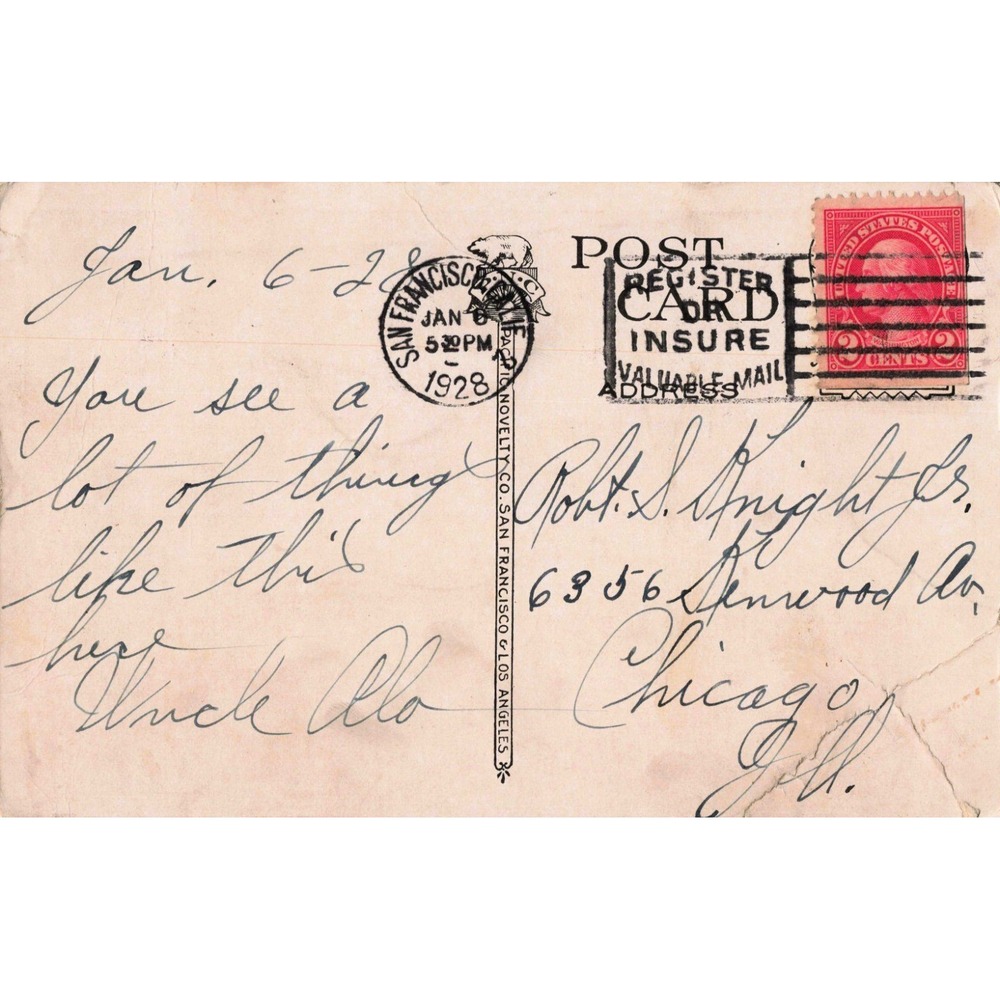 Jan. 6-28
You see a
lot of things
like this
here
Uncle Alo
SAN FRANCISCO, CALIF.
JAN 6
5 30 PM
1928
POST CARD
REGISTER
OR
INSURE
VALUABLE MAIL
ADDRESS
UNITED STATES POSTAGE
2 CENTS 2
PACIFIC NOVELTY CO. SAN FRANCISCO & LOS ANGELES
Robt. S. Knight Jr.
6356 Kenwood Av,
Chicago
Ill.